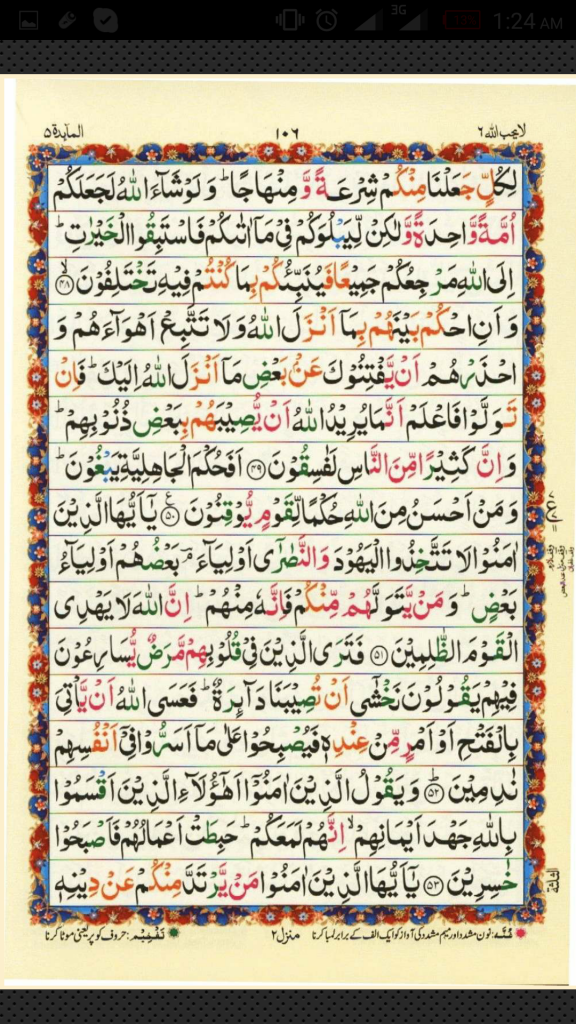 3G 13% 1:24 AM
لا یحب اللہ ۶ ۱۰۶ المآىِٕدة ۵
لِكُلٍّ جَعَلْنَا مِنْكُمْ شِرْعَةً وَّ مِنْهَاجًا ؕ وَ لَوْ شَآءَ اللّٰهُ لَجَعَلَكُمْ
اُمَّةً وَّاحِدَةً وَّلٰكِنْ لِّیَبْلُوَكُمْ فِیْ مَاۤ اٰتٰىكُمْ فَاسْتَبِقُوا الْخَیْرٰتِ ؕ
اِلَى اللّٰهِ مَرْجِعُكُمْ جَمِیْعًا فَیُنَبِّئُكُمْ بِمَا كُنْتُمْ فِیْهِ تَخْتَلِفُوْنَ ۙ﴿۴۸﴾
وَ اَنِ احْكُمْ بَیْنَهُمْ بِمَاۤ اَنْزَلَ اللّٰهُ وَ لَا تَتَّبِعْ اَهْوَآءَهُمْ وَ
احْذَرْهُمْ اَنْ یَّفْتِنُوْكَ عَنْۢ بَعْضِ مَاۤ اَنْزَلَ اللّٰهُ اِلَیْكَ ؕ فَاِنْ
تَوَلَّوْا فَاعْلَمْ اَنَّمَا یُرِیْدُ اللّٰهُ اَنْ یُّصِیْبَهُمْ بِبَعْضِ ذُنُوْبِهِمْ ؕ
وَ اِنَّ كَثِیْرًا مِّنَ النَّاسِ لَفٰسِقُوْنَ ﴿۴۹﴾ اَفَحُكْمَ الْجَاهِلِیَّةِ یَبْغُوْنَ ؕ
وَ مَنْ اَحْسَنُ مِنَ اللّٰهِ حُكْمًا لِّقَوْمٍ یُّوْقِنُوْنَ ﴿۵۰﴾ یٰۤاَیُّهَا الَّذِیْنَ
اٰمَنُوْا لَا تَتَّخِذُوا الْیَهُوْدَ وَ النَّصٰرٰۤى اَوْلِیَآءَ ؔۘ بَعْضُهُمْ اَوْلِیَآءُ
بَعْضٍ ؕ وَ مَنْ یَّتَوَلَّهُمْ مِّنْكُمْ فَاِنَّهٗ مِنْهُمْ ؕ اِنَّ اللّٰهَ لَا یَهْدِی
الْقَوْمَ الظّٰلِمِیْنَ ﴿۵۱﴾ فَتَرَى الَّذِیْنَ فِیْ قُلُوْبِهِمْ مَّرَضٌ یُّسَارِعُوْنَ
فِیْهِمْ یَقُوْلُوْنَ نَخْشٰۤى اَنْ تُصِیْبَنَا دَآىِٕرَةٌ ؕ فَعَسَى اللّٰهُ اَنْ یَّاْتِیَ
بِالْفَتْحِ اَوْ اَمْرٍ مِّنْ عِنْدِهٖ فَیُصْبِحُوْا عَلٰى مَاۤ اَسَرُّوْا فِیْۤ اَنْفُسِهِمْ
نٰدِمِیْنَ ﴿۵۲﴾ وَ یَقُوْلُ الَّذِیْنَ اٰمَنُوْۤا اَهٰۤؤُلَآءِ الَّذِیْنَ اَقْسَمُوْا
بِاللّٰهِ جَهْدَ اَیْمَانِهِمْ ۙ اِنَّهُمْ لَمَعَكُمْ ؕ حَبِطَتْ اَعْمَالُهُمْ فَاَصْبَحُوْا
خٰسِرِیْنَ ﴿۵۳﴾ یٰۤاَیُّهَا الَّذِیْنَ اٰمَنُوْا مَنْ یَّرْتَدَّ مِنْكُمْ عَنْ دِیْنِهٖ
الثلثة
غُنَّہ: نون مشدد اور میم مشدد کی آواز کو ایک الف کے برابر لمبا کرنا منزل ۲ تَفْخِیْم: حروف کو پُر یعنی موٹا کرنا